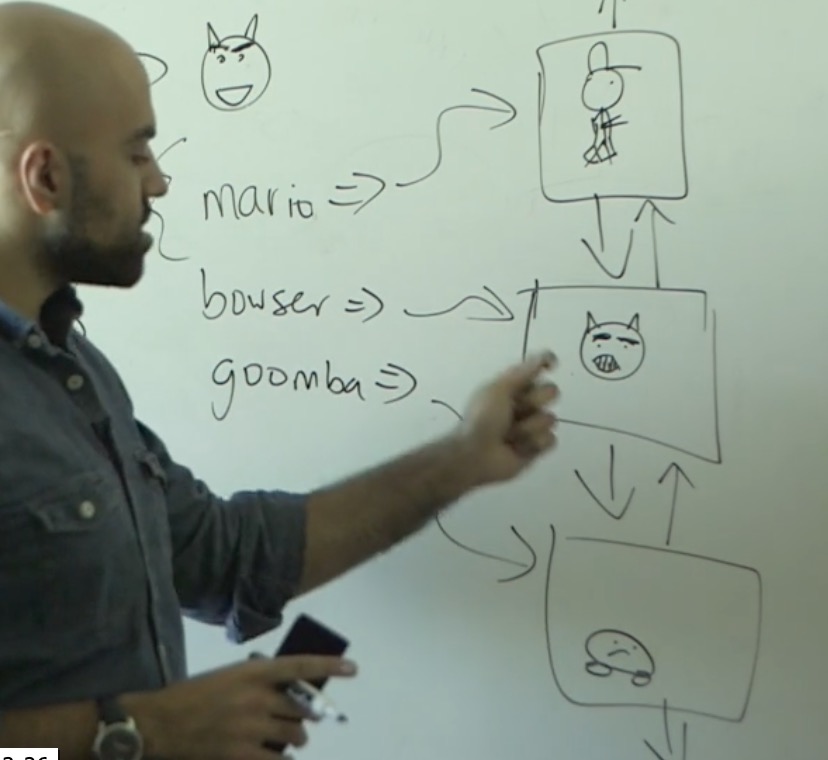 mario =>
bowser =>
goomba =>